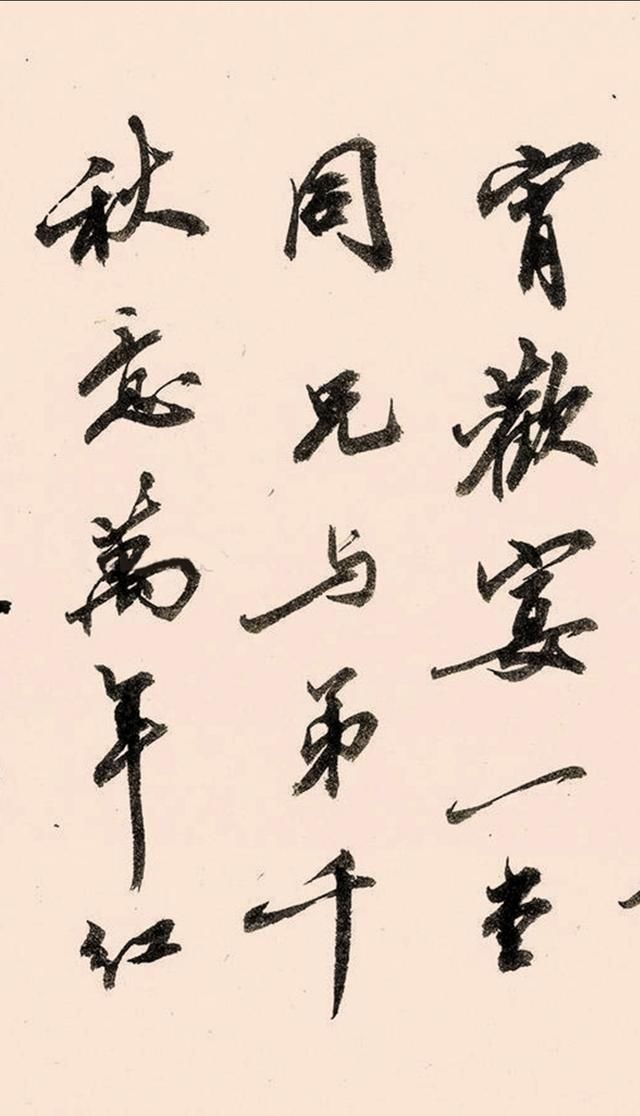 宵歡宴一堂
同兄与弟千
秋萬年红